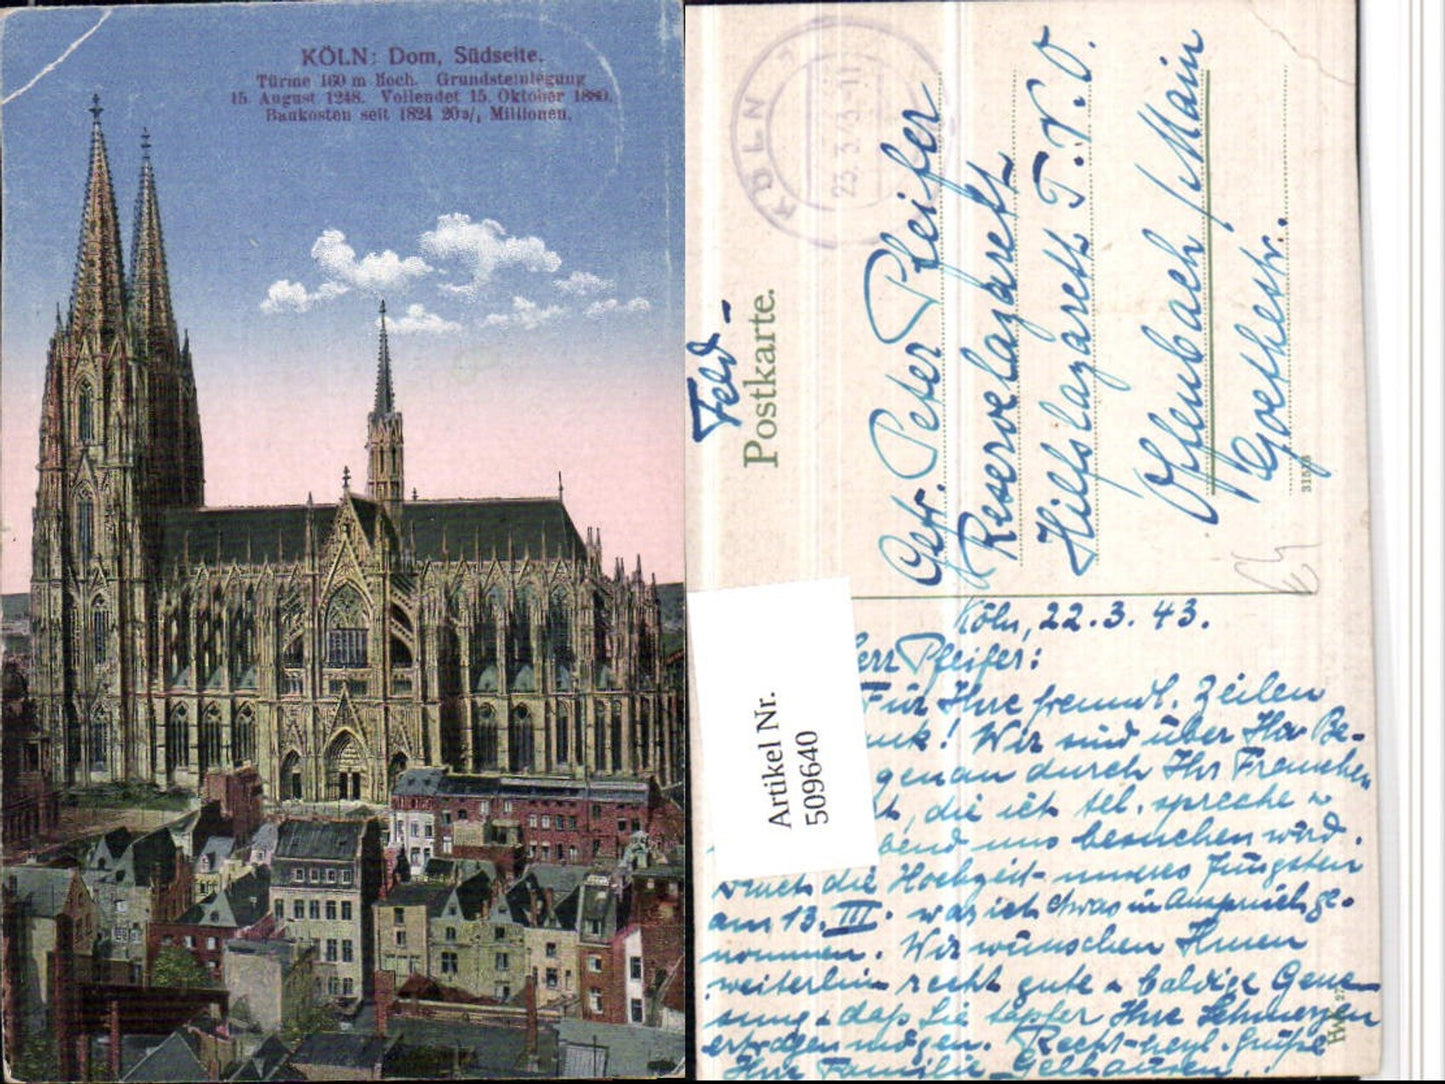 KÖLN: Dom, Südseite.
Türme 160 m hoch. Grundsteinlegung
15. August 1248. Vollendet 15. Oktober 1880.
Baukosten seit 1824 20 3/4 Millionen.
KÖLN
23.3.43-11
Feld-
Postkarte.
Gefr. Peter Pfeifer
Reservelazarett
Hilfslazarett T.V.O.
Offenbach/Main
Goethestr.
Artikel Nr.
509640
Köln, 22.3.43.
Herr Pfeifer:
Für Ihre freundl. Zeilen
! Wir sind über Ihr Be-
genau durch Ihr Frenchen
, die ich tel. spreche u
uns besuchen wird.
die Hochzeit unseres Jüngsten
am 13. III. was ich etwas in Anspruch ge-
nommen. Wir wünschen Ihnen
weiterhin recht gute u baldige Gene-
sung u daß Sie tapfer Ihre Schmerzen
ertragen mögen. Recht herzl. Grüße
Ihre Familie Gelhausen.